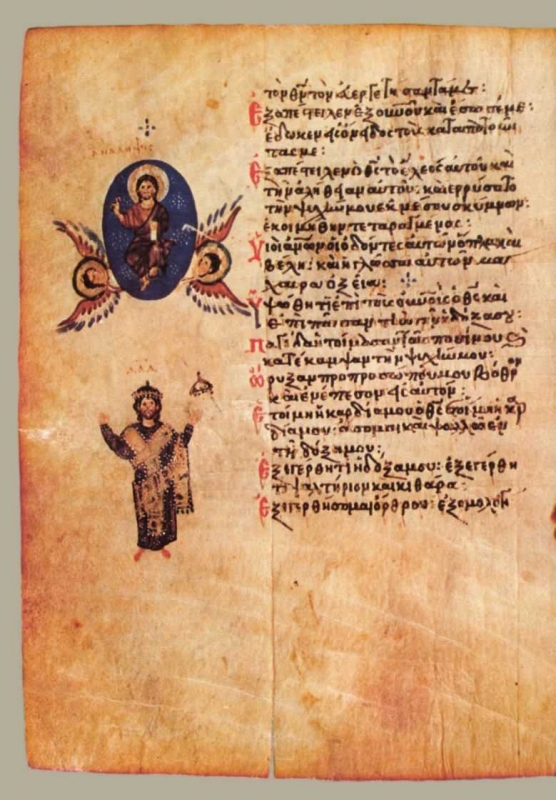 ΑΝΑΛΗΨΙϹ
ΔΑΔ
τὸν θν τὸν εὐεργετήσαντά με:
Ἐξαπέστειλεν ἐξ οὐνοῦ καὶ ἔσωσέ με:
ἔδωκεν εἰς ὄνειδος τοὺς καταπατοῦν
τάς με:
Ἐξαπέστειλεν ὁ θς τὸ ἔλεος αὐτοῦ καὶ
τὴν ἀλήθειαν αὐτοῦ. καὶ ἐρρύσατο
τὴν ψυχήν μου ἐκ μέσου σκύμνων:
ἐκοιμήθην τεταραγμένος:
Υἱοὶ ἀνων οἱ ὀδόντες αὐτῶν ὅπλον καὶ
βέλη: καὶ ἡ γλῶσσα αὐτῶν μά
χαιρα ὀξεῖα:
Ὑψώθητι ἐπὶ τοὺς οὐνοὺς ὁ θς καὶ
ἐπὶ πᾶσαν τὴν γῆν ἡ δόξα σου:
Παγίδα ἡτοίμασαν τοῖς ποσί μου κ
κατέκαμψαν τὴν ψυχήν μου:
Ὤρυξαν πρὸ προσώπου μου βόθρον
καὶ ἐνέπεσον εἰς αὐτόν:
Ἑτοίμη ἡ καρδία μου ὁ θς ἑτοίμη ἡ καρ
δία μου: ᾄσομαι καὶ ψαλῶ ἐν
τῇ δόξῃ μου:
Ἐξεγέρθητι ἡ δόξα μου: ἐξεγέρθη
τι ψαλτήριον καὶ κιθάρα:
Ἐξεγερθήσομαι ὄρθρου: ἐξομολογή